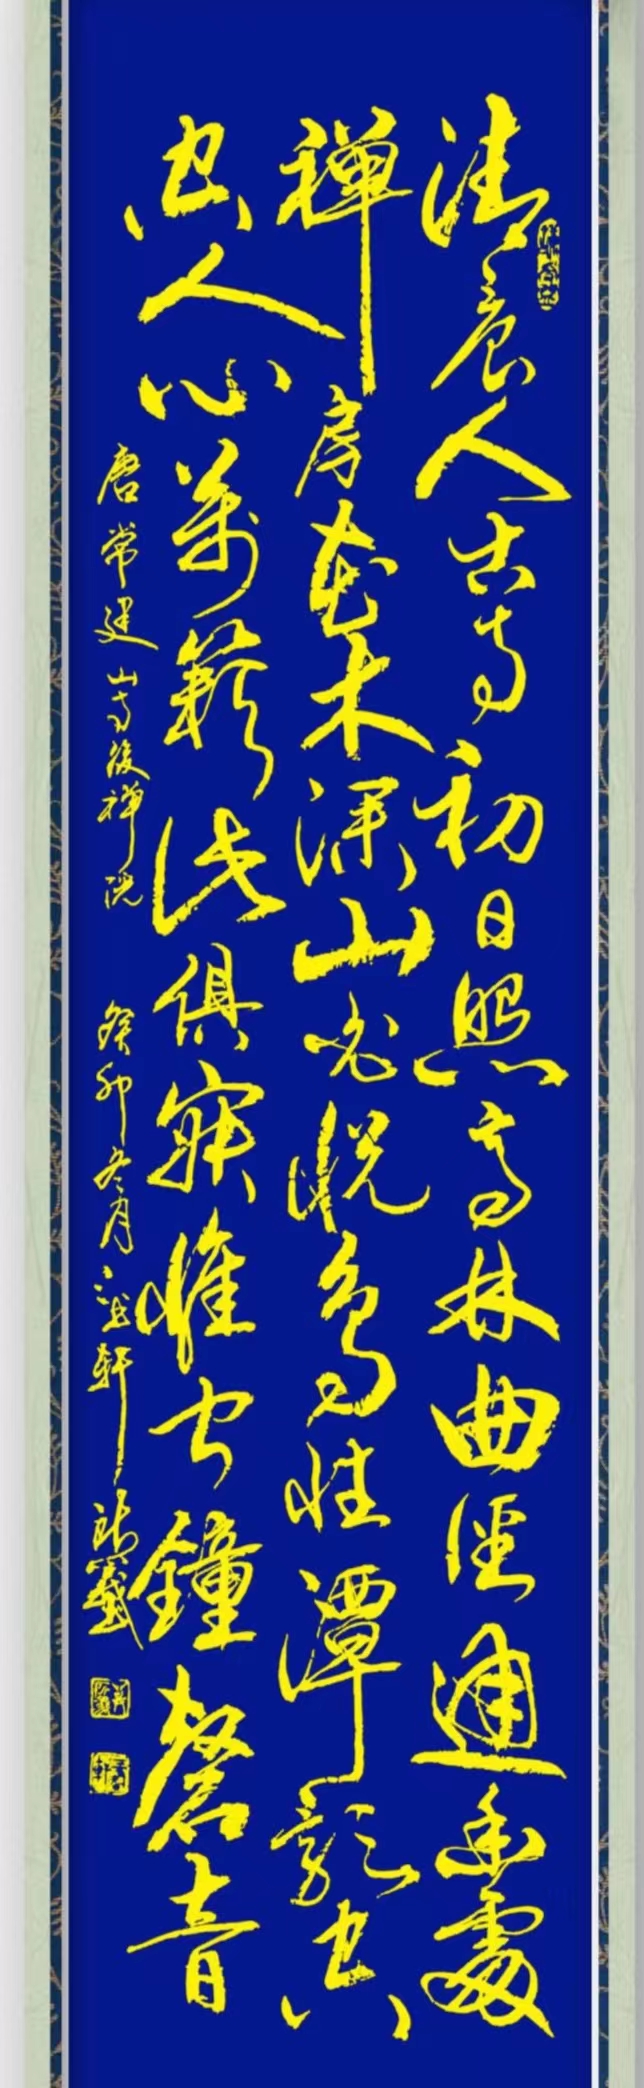 清晨入古寺初日照高林曲徑通幽處
禅房花木深山光悦鳥性潭影空
空人心萬籟此俱寂惟聞鐘磬音
唐常建山寺後禅院 癸卯冬月 軒